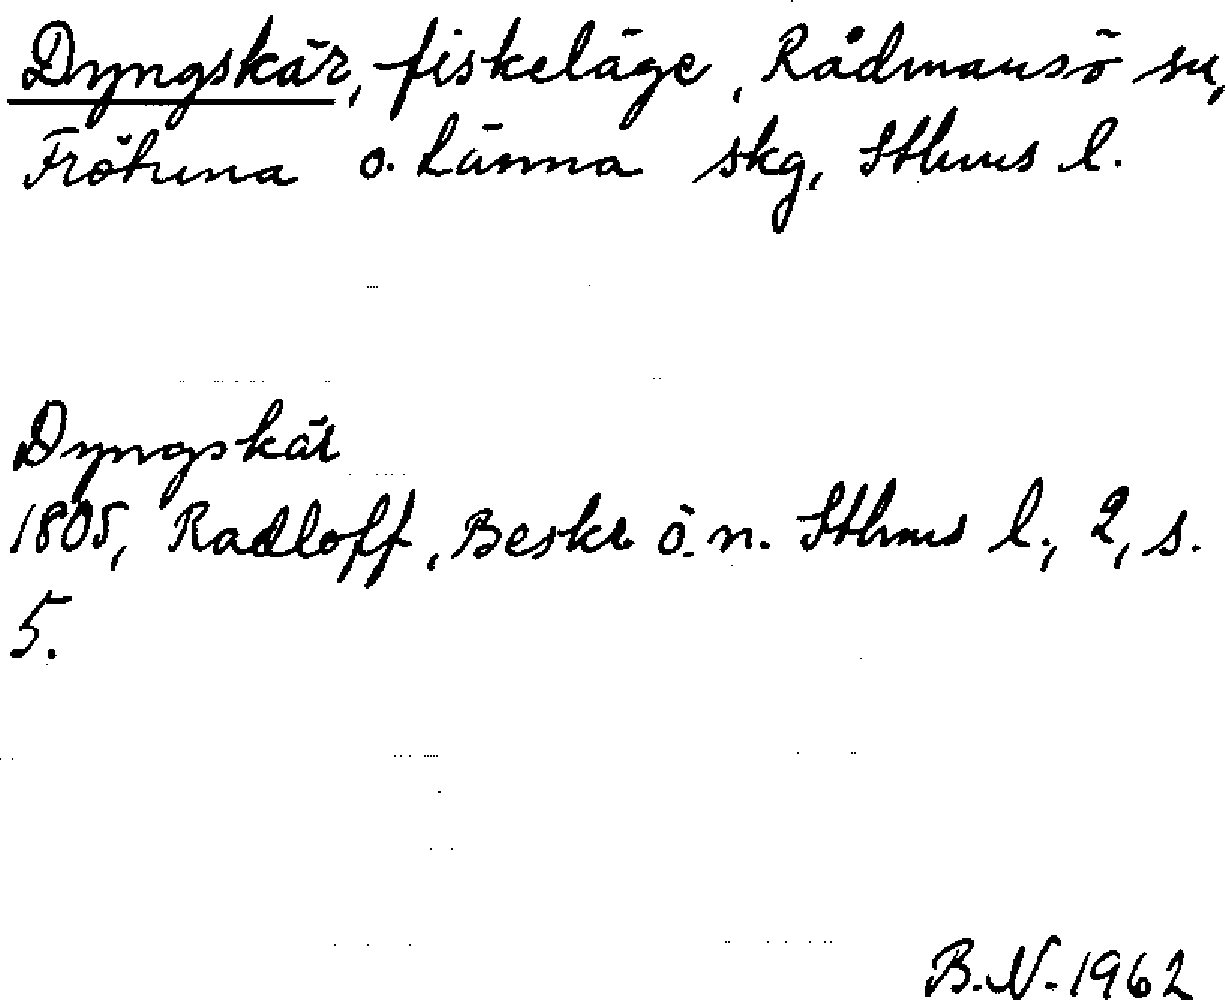 Dyngskär, fiskeläge, Rådmansö sn,
Frötuna o. Länna skg, Sthms l.
Dyngskär
1805, Radloff, Beskr ö. n. Sthms l., 2, s.
5.
B.N. 1962